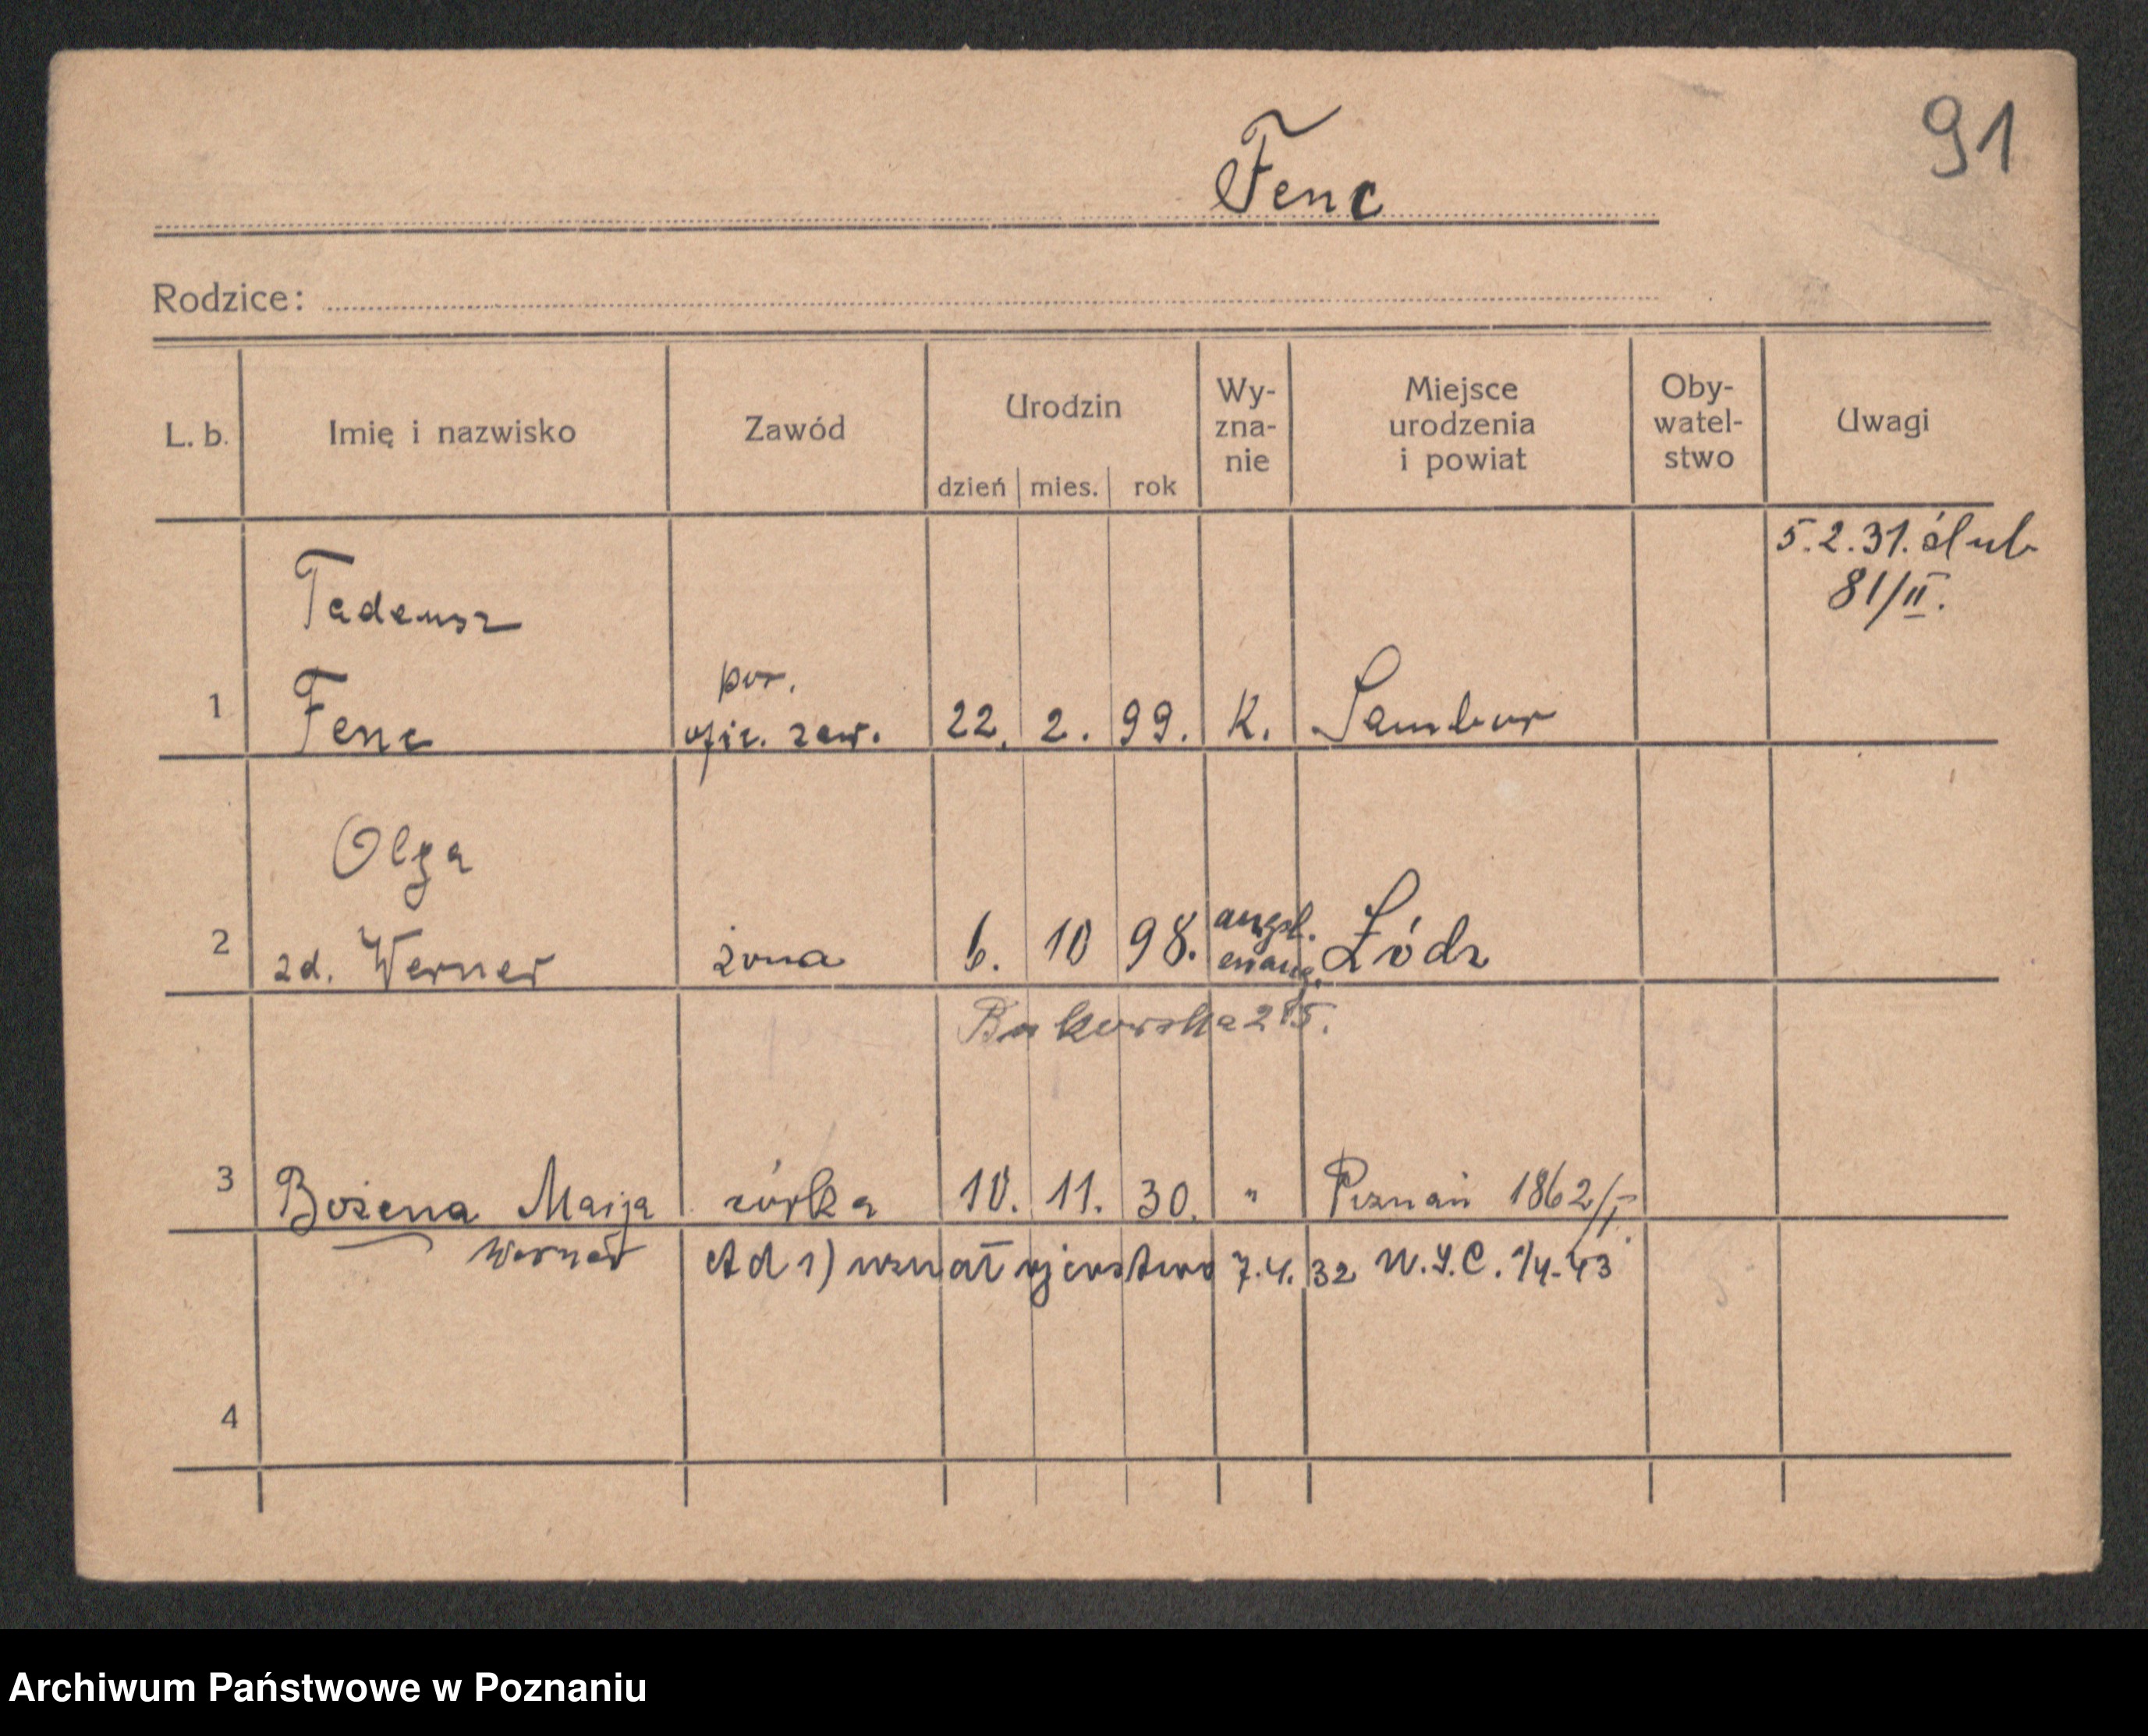 91
Fenc
Rodzice:
L. b. Imię i nazwisko Zawód Urodzin dzień mies. rok Wy-zna-nie Miejsce urodzenia i powiat Oby-watel-stwo Uwagi
5.2.31. ślub
81/II.
Tadeusz
por.
1 Fenc ofic. zaw. 22. 2. 99. K. Sambor
Olga
angsb.
2 zd. Werner żona 6. 10 98. ewang. Łódz
Bukowska
3 Bożena Marja córka 10. 11. 30. " Poznań 1862/
Werner Ad 1) uznał ojcostwo 7.4.32
4
Archiwum Państwowe w Poznaniu